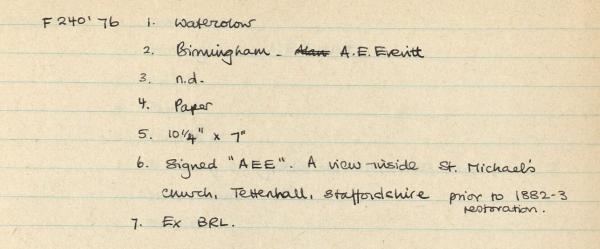 F240'76 1. Watercolour
2. Birmingham - Alan A.E. Everitt
3. n.d.
4. Paper
5. 10¼" x 7"
6. Signed "AEE". A view inside St. Michael's
church, Tettenhall, Staffordshire prior to 1882-3
restoration.
7. Ex BRL.